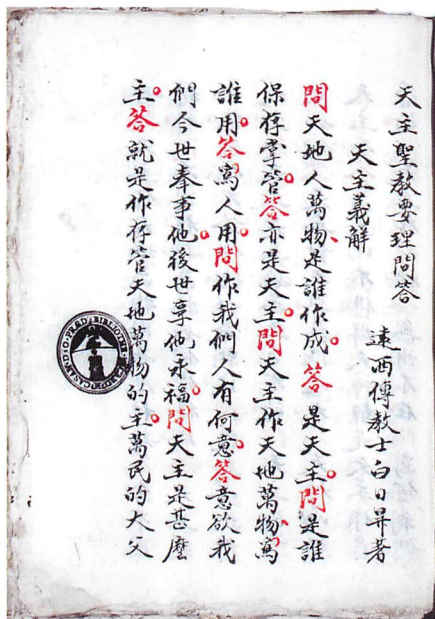 天主聖教要理問答
遠西傳教士白日昇著
天主義解
問天地人萬物、是誰作成。答是天主。問是誰
保存掌管。答亦是天主。問天主作天地萬物、爲
誰用。答爲人用。問作我們人有何意。答意欲我
們今世奉事他。後世享他永福。問天主是甚麼
主。答就是作存管天地萬物的主。萬民的大父